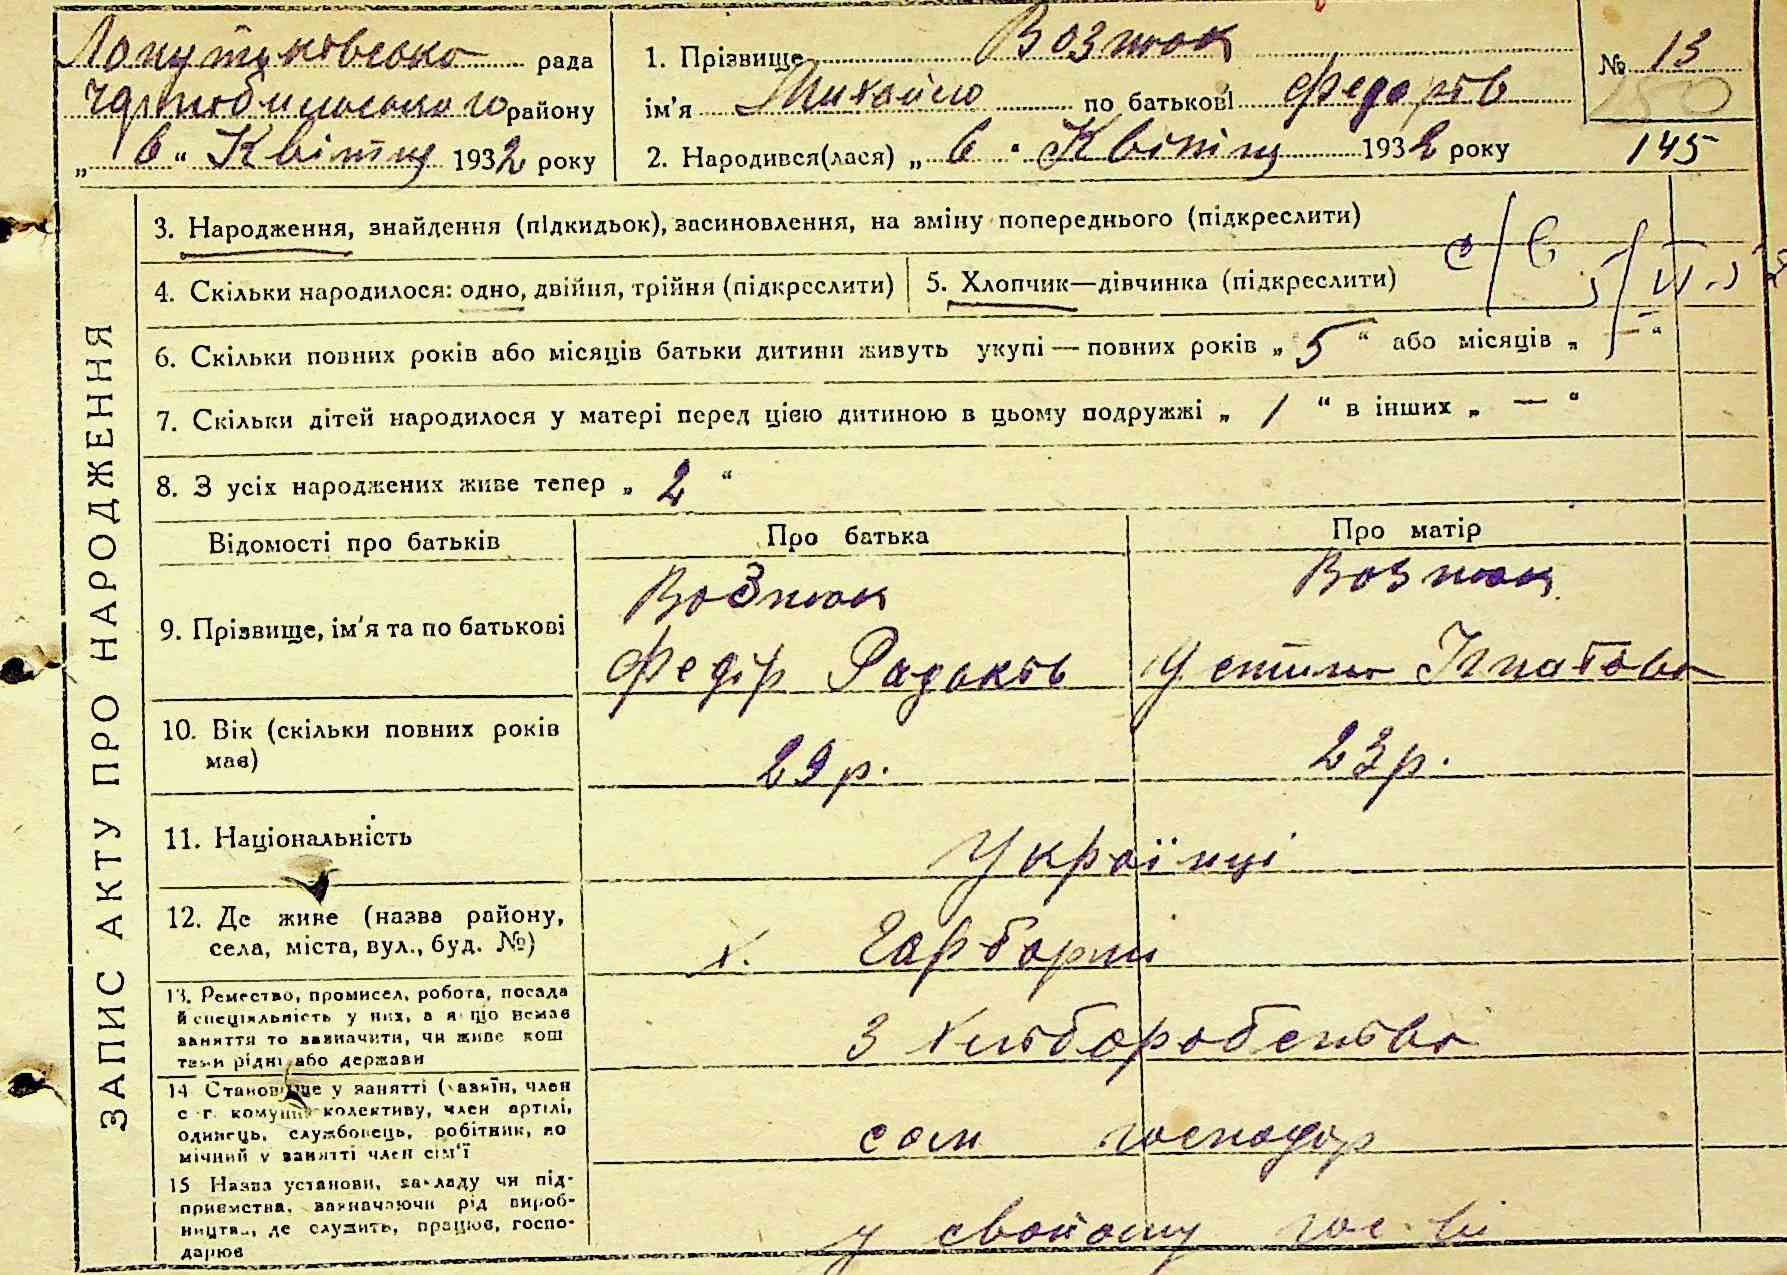 рада
району
„ 6 " Квітня 1932 року
1. Прізвище Вознюк
ім'я Михайло по батькові Федорів
2. Народився(лася) „ 6 " Квітня 1932 року
№ 13
150
145
ЗАПИС АКТУ ПРО НАРОДЖЕННЯ
3. Народження, знайдення (підкидьок), засиновлення, на зміну попереднього (підкреслити)
4. Скільки народилося: одно, двійня, трійня (підкреслити)
5. Хлопчик—дівчинка (підкреслити)
6. Скільки повних років або місяців батьки дитини живуть укупі — повних років „ 5 " або місяців „ — "
7. Скільки дітей народилося у матері перед цією дитиною в цьому подружжі „ 1 " в інших „ — "
8. З усіх народжених живе тепер „ 2 "
Відомості про батьків
Про батька
Про матір
9. Прізвище, ім'я та по батькові
Вознюк
Федір
Вознюк
Устина Ігнатова
10. Вік (скільки повних років
має)
29 р.
23 р.
11. Національність
Українці
12. Де живе (назва району,
села, міста, вул., буд. №)
х.
13. Ремество, промисел, робота, посада
й спеціяльність у них, а якщо немає
заняття то зазначити, чи живе кош
тами рідні або держави
З хліборобства
14 Становище у занятті (хазяїн, член
с г. комуни колективу, член артілі,
одинець, службовець, робітник, по
мічний у занятті член сім'ї
сам господар
15 Назва установи, закладу чи під-
приємства, зазначаючи рід вироб-
ництва, де служить, працює, госпо-
дарює
у свойому гос-ві